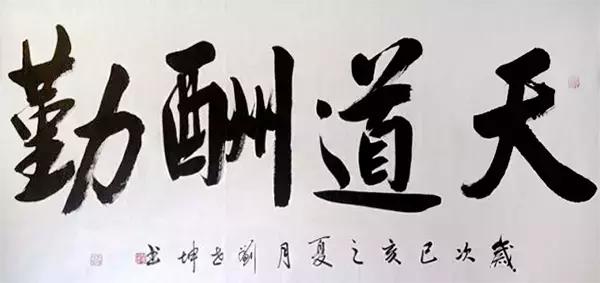 天道酬勤
歲次己亥之夏月劉坤书